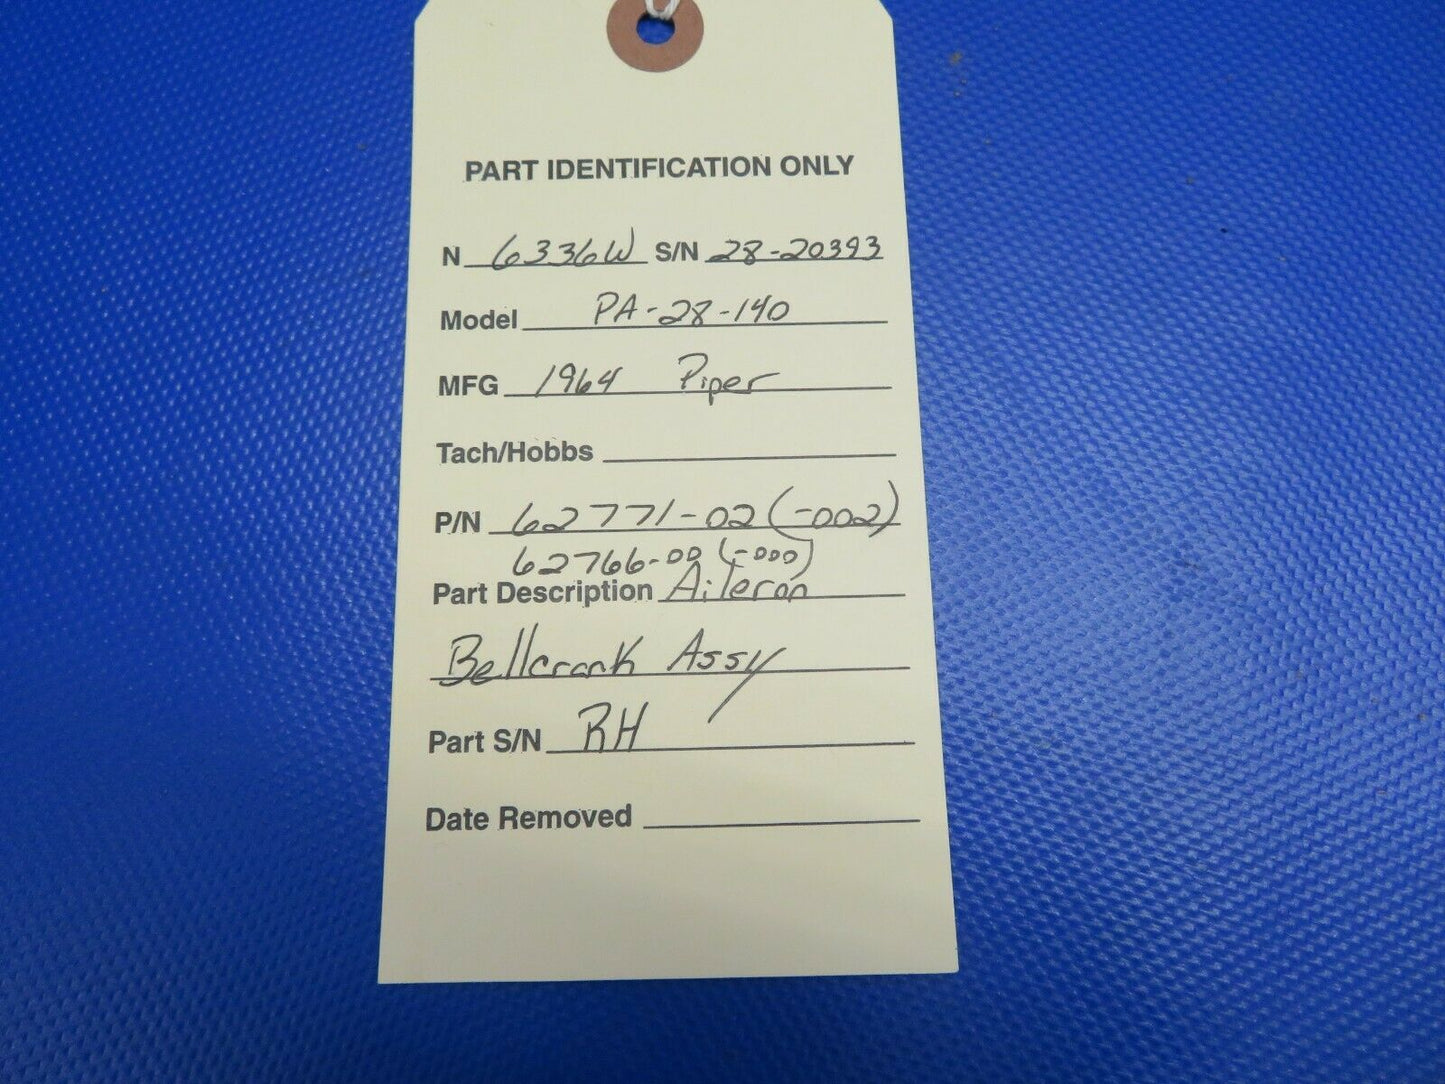 PART IDENTIFICATION ONLY
N 6336W S/N 28-20393
Model PA-28-140
MFG 1964 Piper
Tach/Hobbs
P/N 62771-02 (-002)
62766-00 (-000)
Part Description Aileron
Bellcrank Assy
Part S/N RH
Date Removed